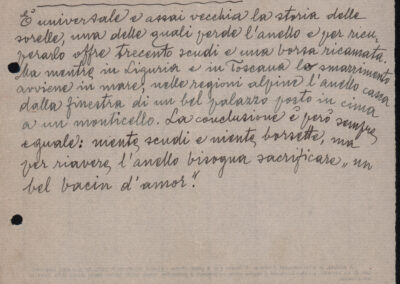 È universale e assai vecchia la storia delle
sorelle, una delle quali perde l'anello e per ricu-
perarlo offre trecento scudi e una borsa ricamata.
Ma mentre in Liguria e in Toscana lo smarrimento
avviene in mare, nelle regioni alpine l'anello casca
dalla finestra di un bel palazzo posto in cima
a un monticello. La conclusione è però sempre
eguale: niente scudi e niente borsette, ma
per riavere l'anello bisogna sacrificare „un
bel bacin d'amor".